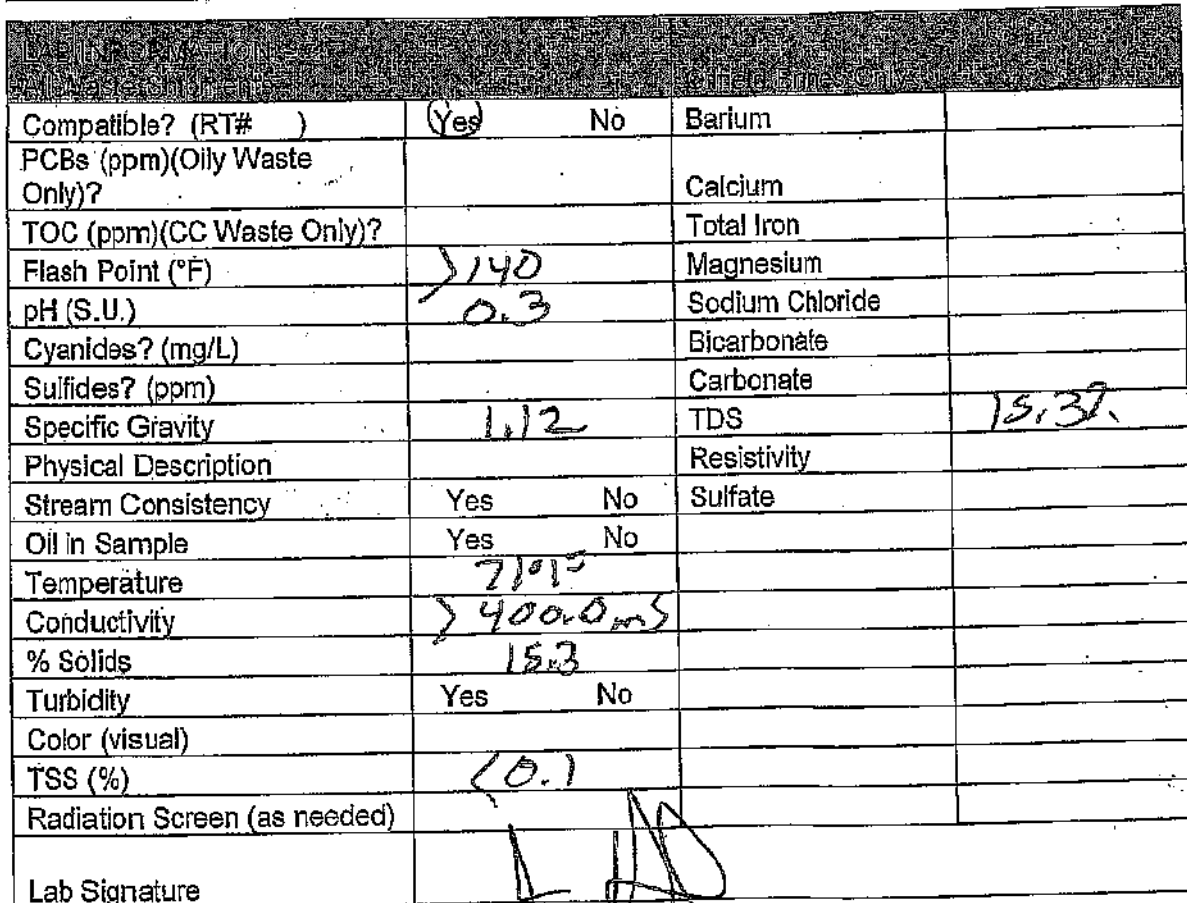 LAB INFORMATION
All Waste Shipments Oilfield Brines Only
Compatible? (RT# ) Yes No Barium
PCBs (ppm)(Oily Waste
Only)? Calcium
TOC (ppm)(CC Waste Only)? Total Iron
Flash Point (°F) >140 Magnesium
pH (S.U.) 0.3 Sodium Chloride
Cyanides? (mg/L) Bicarbonate
Sulfides? (ppm) Carbonate
Specific Gravity 1.12 TDS 15.3%
Physical Description Resistivity
Stream Consistency Yes No Sulfate
Oil in Sample Yes No
Temperature 71°F
Conductivity >400.0 mS
% Solids 15.3
Turbidity Yes No
Color (visual)
TSS (%) <0.1
Radiation Screen (as needed)
Lab Signature